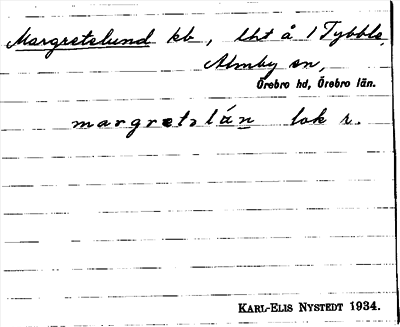 Margretelund kb, lht å 1 Tybble,
Almby sn,
Örebro hd, Örebro län.
margretəlán lok r.
KARL-ELIS NYSTEDT 1934.